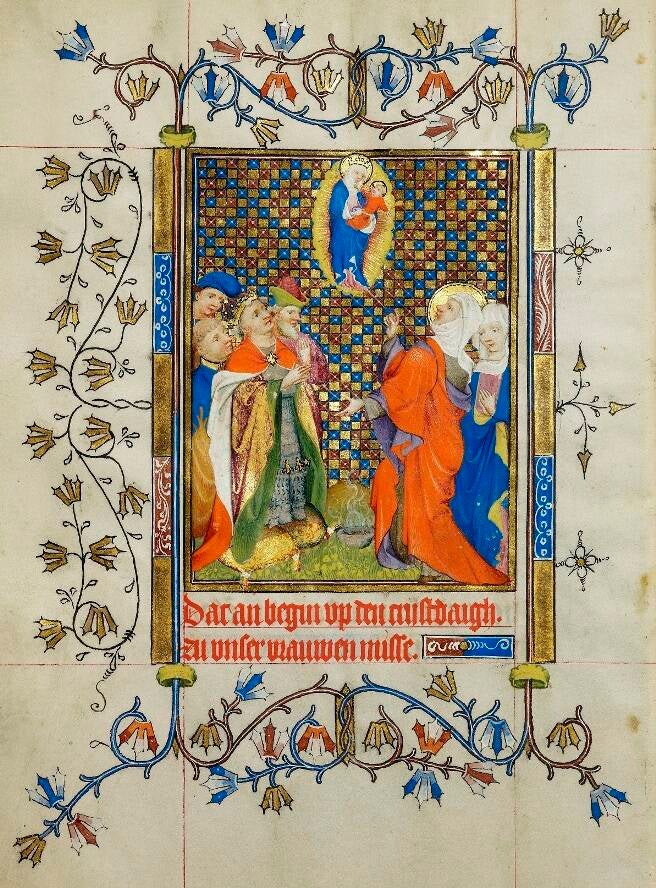 Dat an begin vp den cristdaigh.
zu vnser vrauwen misse.